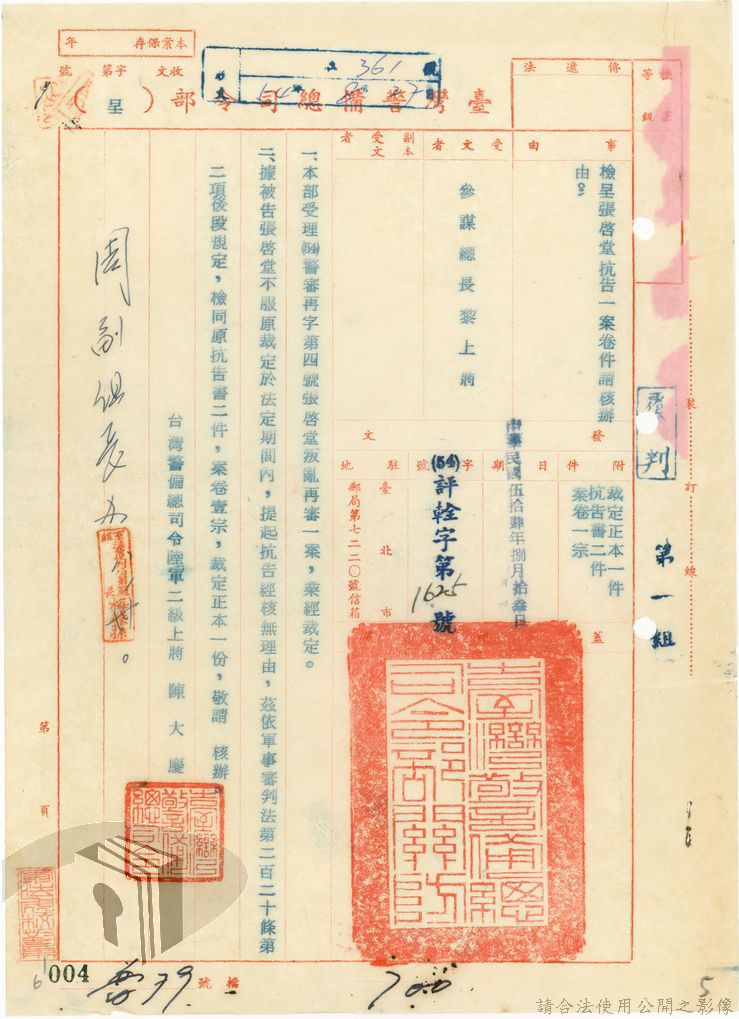 本案保存 年
收文 字第 號
361
54 8 27
臺灣警備總司令部（呈）
傳遞法
機密等級
裝 訂 線
事由
檢呈張啓堂抗告一案卷件請核辦
由。
覆判
第一組
受文者
參謀總長黎上將
副本受文者
發文
附件
裁定正本一件
抗告書二件
案卷一宗
日期
中華民國伍拾肆年捌月拾叁日
字號
(54)評輇字第1625號
駐地
臺北市
郵局第七二二〇號信箱
蓋
臺灣警備總司令部關防
一、本部受理(54)警審再字第四號張啓堂叛亂再審一案，業經裁定。
二、據被告張啓堂不服原裁定於法定期間內，提起抗告經核無理由，茲依軍事審判法第二百二十條第
二項後段規定，檢同原抗告書二件，案卷壹宗，裁定正本一份，敬請 核辦。
台灣警備總司令陸軍二級上將 陳大慶
周副組長
第 頁
004
檔號
39
700
5
6
請合法使用公開之影像